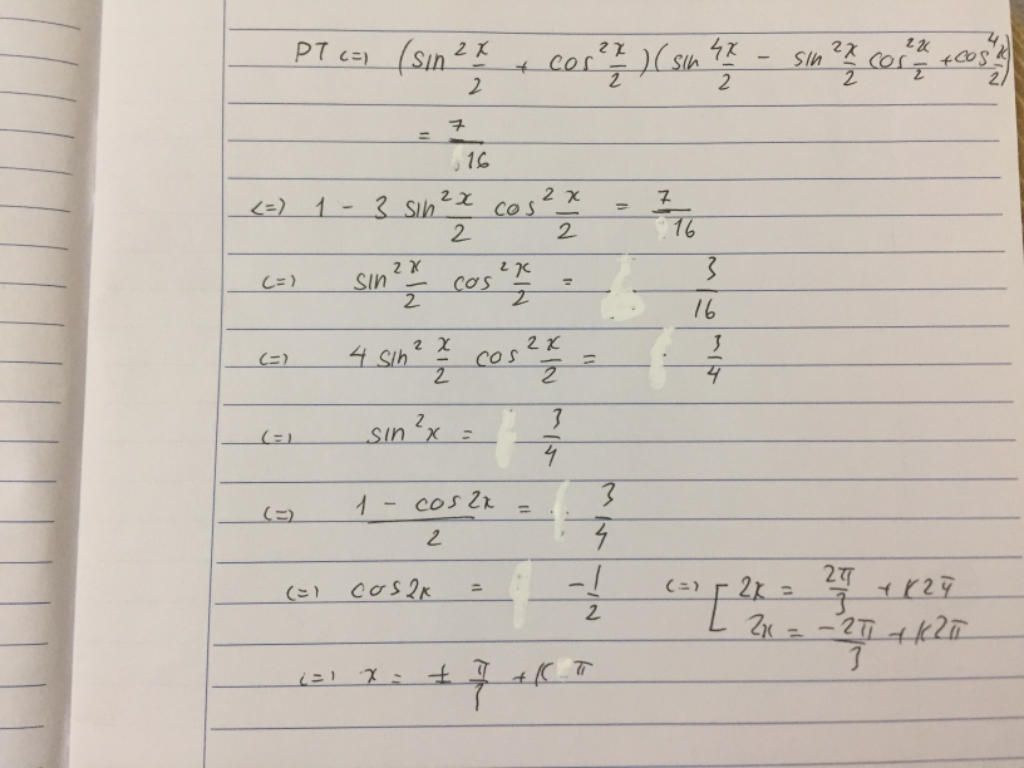 PT <=> (sin²x/2 + cos²x/2)(sin⁴x/2 - sin²x/2 cos²x/2 + cos⁴x/2)
= 7/16
<=> 1 - 3 sin²x/2 cos²x/2 = 7/16
<=> sin²x/2 cos²x/2 = 3/16
<=> 4 sin²x/2 cos²x/2 = 3/4
<=> sin²x = 3/4
<=> (1 - cos2x)/2 = 3/4
<=> cos2x = -1/2 <=> [ 2x = 2π/3 + k2π
2x = -2π/3 + k2π
<=> x = ± π/3 + kπ